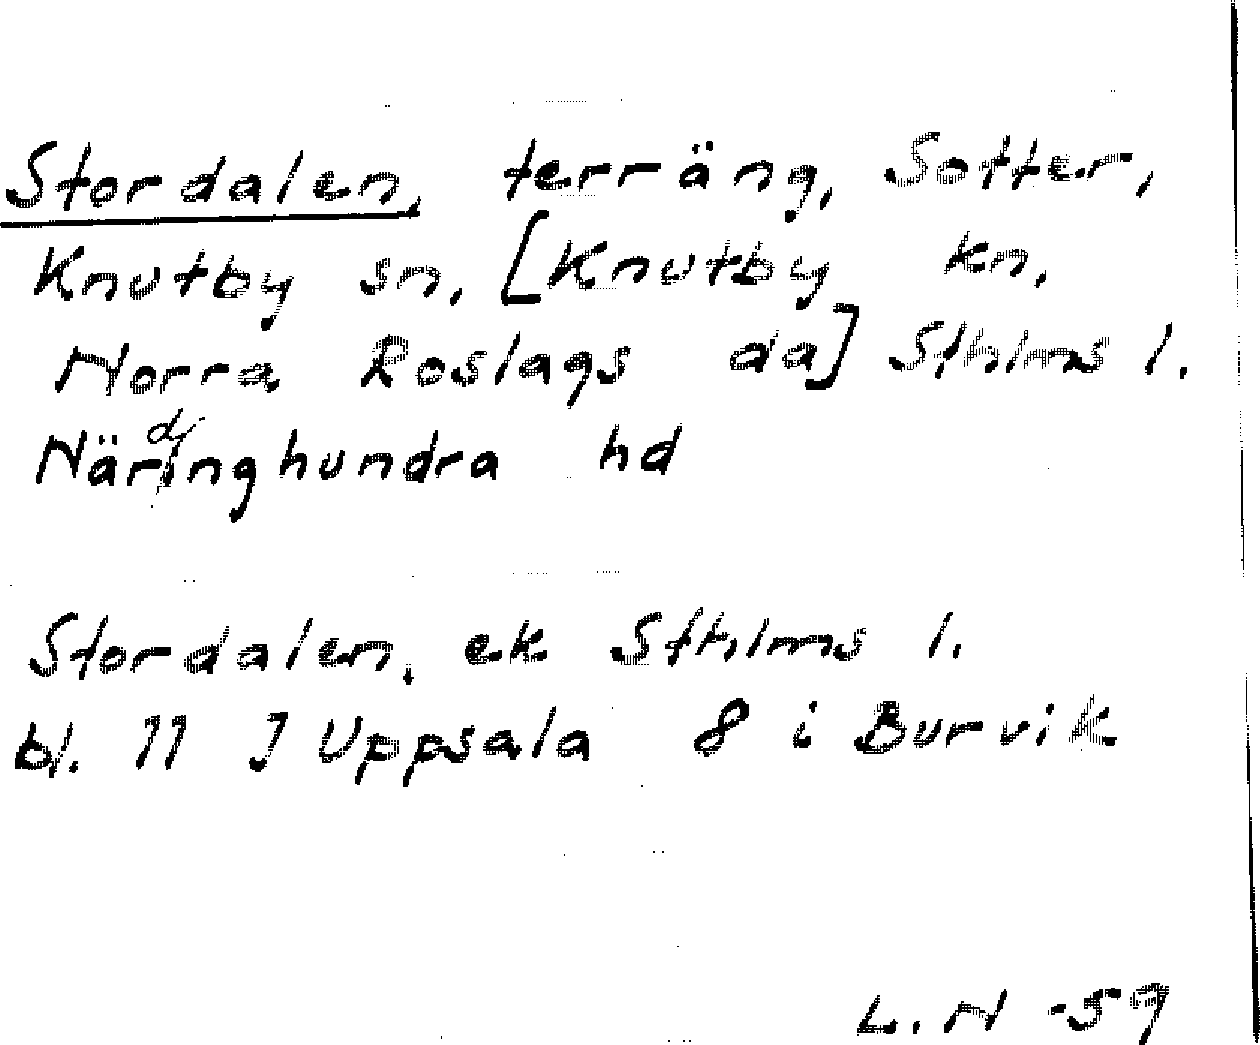 Stordalen, terräng, Sotter,
Knutby sn, [Knutby kn,
Norra Roslags da] Sthlms l.
Närdinghundra hd
Stordalen, ek Sthlms l.
bl. 11 J Uppsala 8 i Burvik
L. N -59